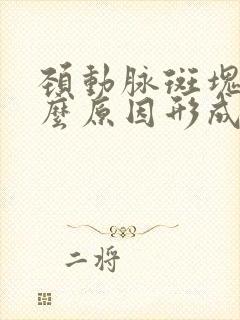 頚動脉斑塊
麼原因形成
二将